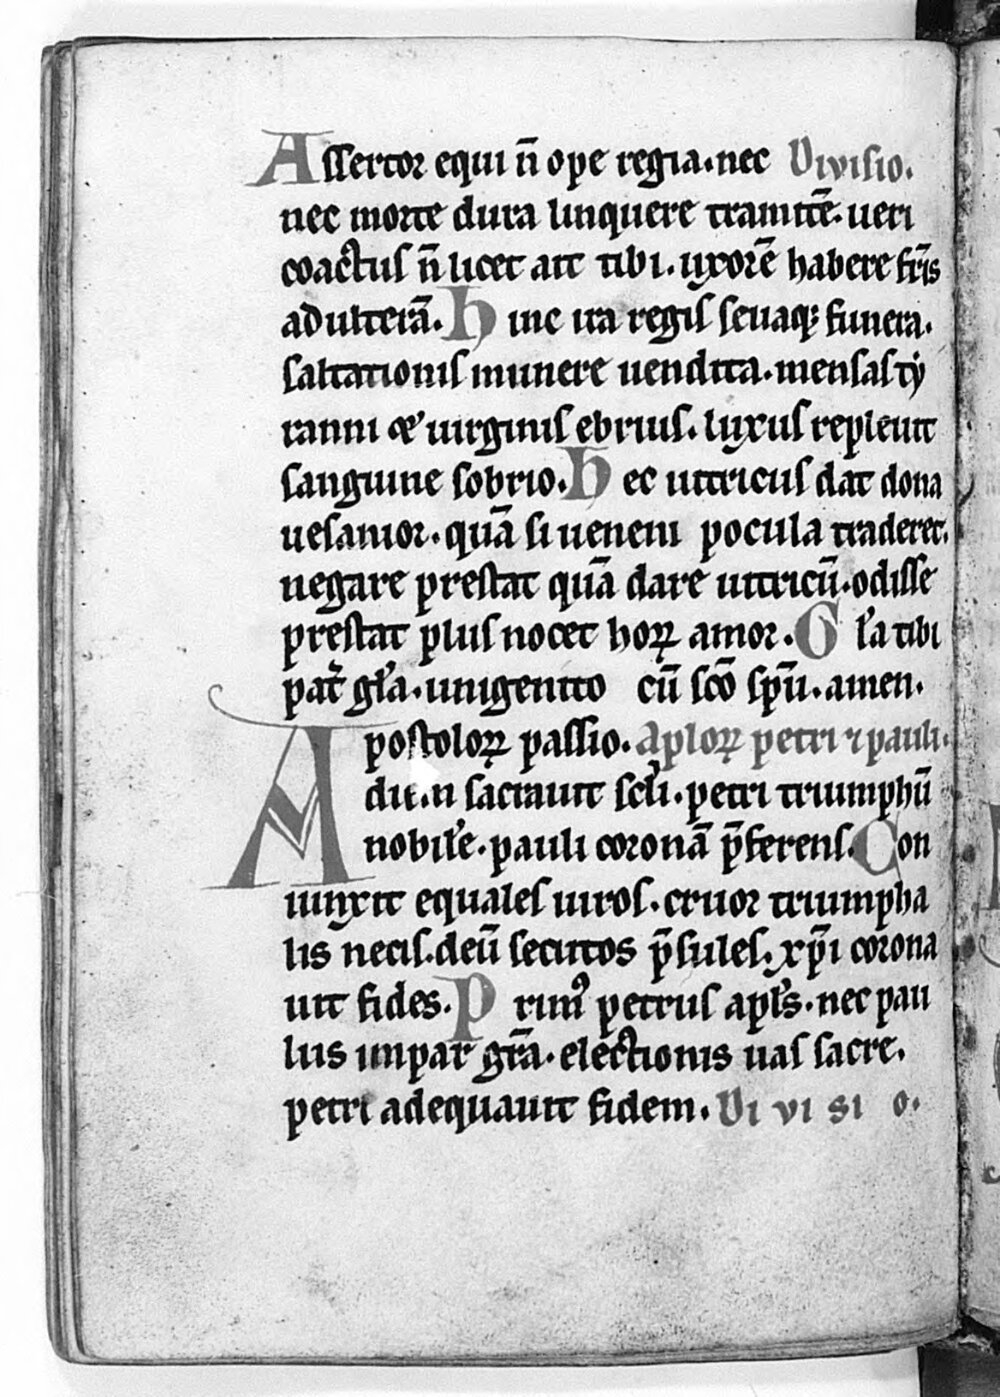 Assertor equi n̄ ope regia. nec Divisio.
nec morte dura linquere tramitē. ueri
coactus n̄ licet ait tibi. uxorē habere fr̄is
adulterā. Hinc ita regis seuaq; funera.
saltationis munere uendita. mensas ty
ranni & uirginis ebrius. luxus repleuit
sanguine sobrio. Hec ultricus dat dona
uesanior. quā si ueneni pocula traderet.
negare prestat quā dare ultricū. odisse
prestat plus nocet hoꝝ amor. Gl̄a tibi
pat̄ gl̄a. unigenito cū sc̄o sp̄u. amen.
Apostoloꝝ passio. Apl̄oꝝ petri ⁊ pauli.
diem sacrauit scl̄i. petri triumphū
nobil̄e. pauli coronā p̄ferens. Con
iunxit equales uiros. cruor triumpha
lis necis. deū secutos p̄sules. xp̄i corona
uit fides. Primꝰ petrus apl̄s. nec pau
lus impar gr̄a. electionis uas sacre.
petri adequauit fidem. Divisio.